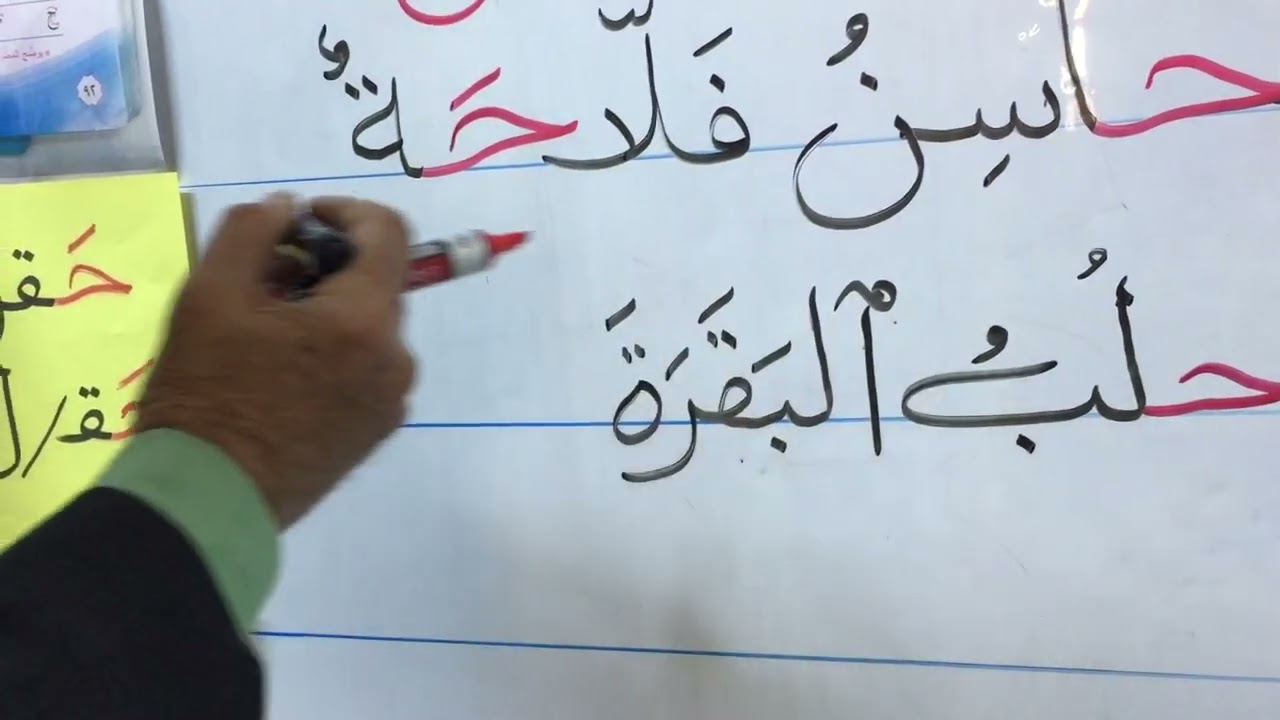 حاسِنُ فَلّاحَةٌ
حلُبُ ٱلبَقَرَةَ
حَقـ
حَقـ/ل
ج
٩٢